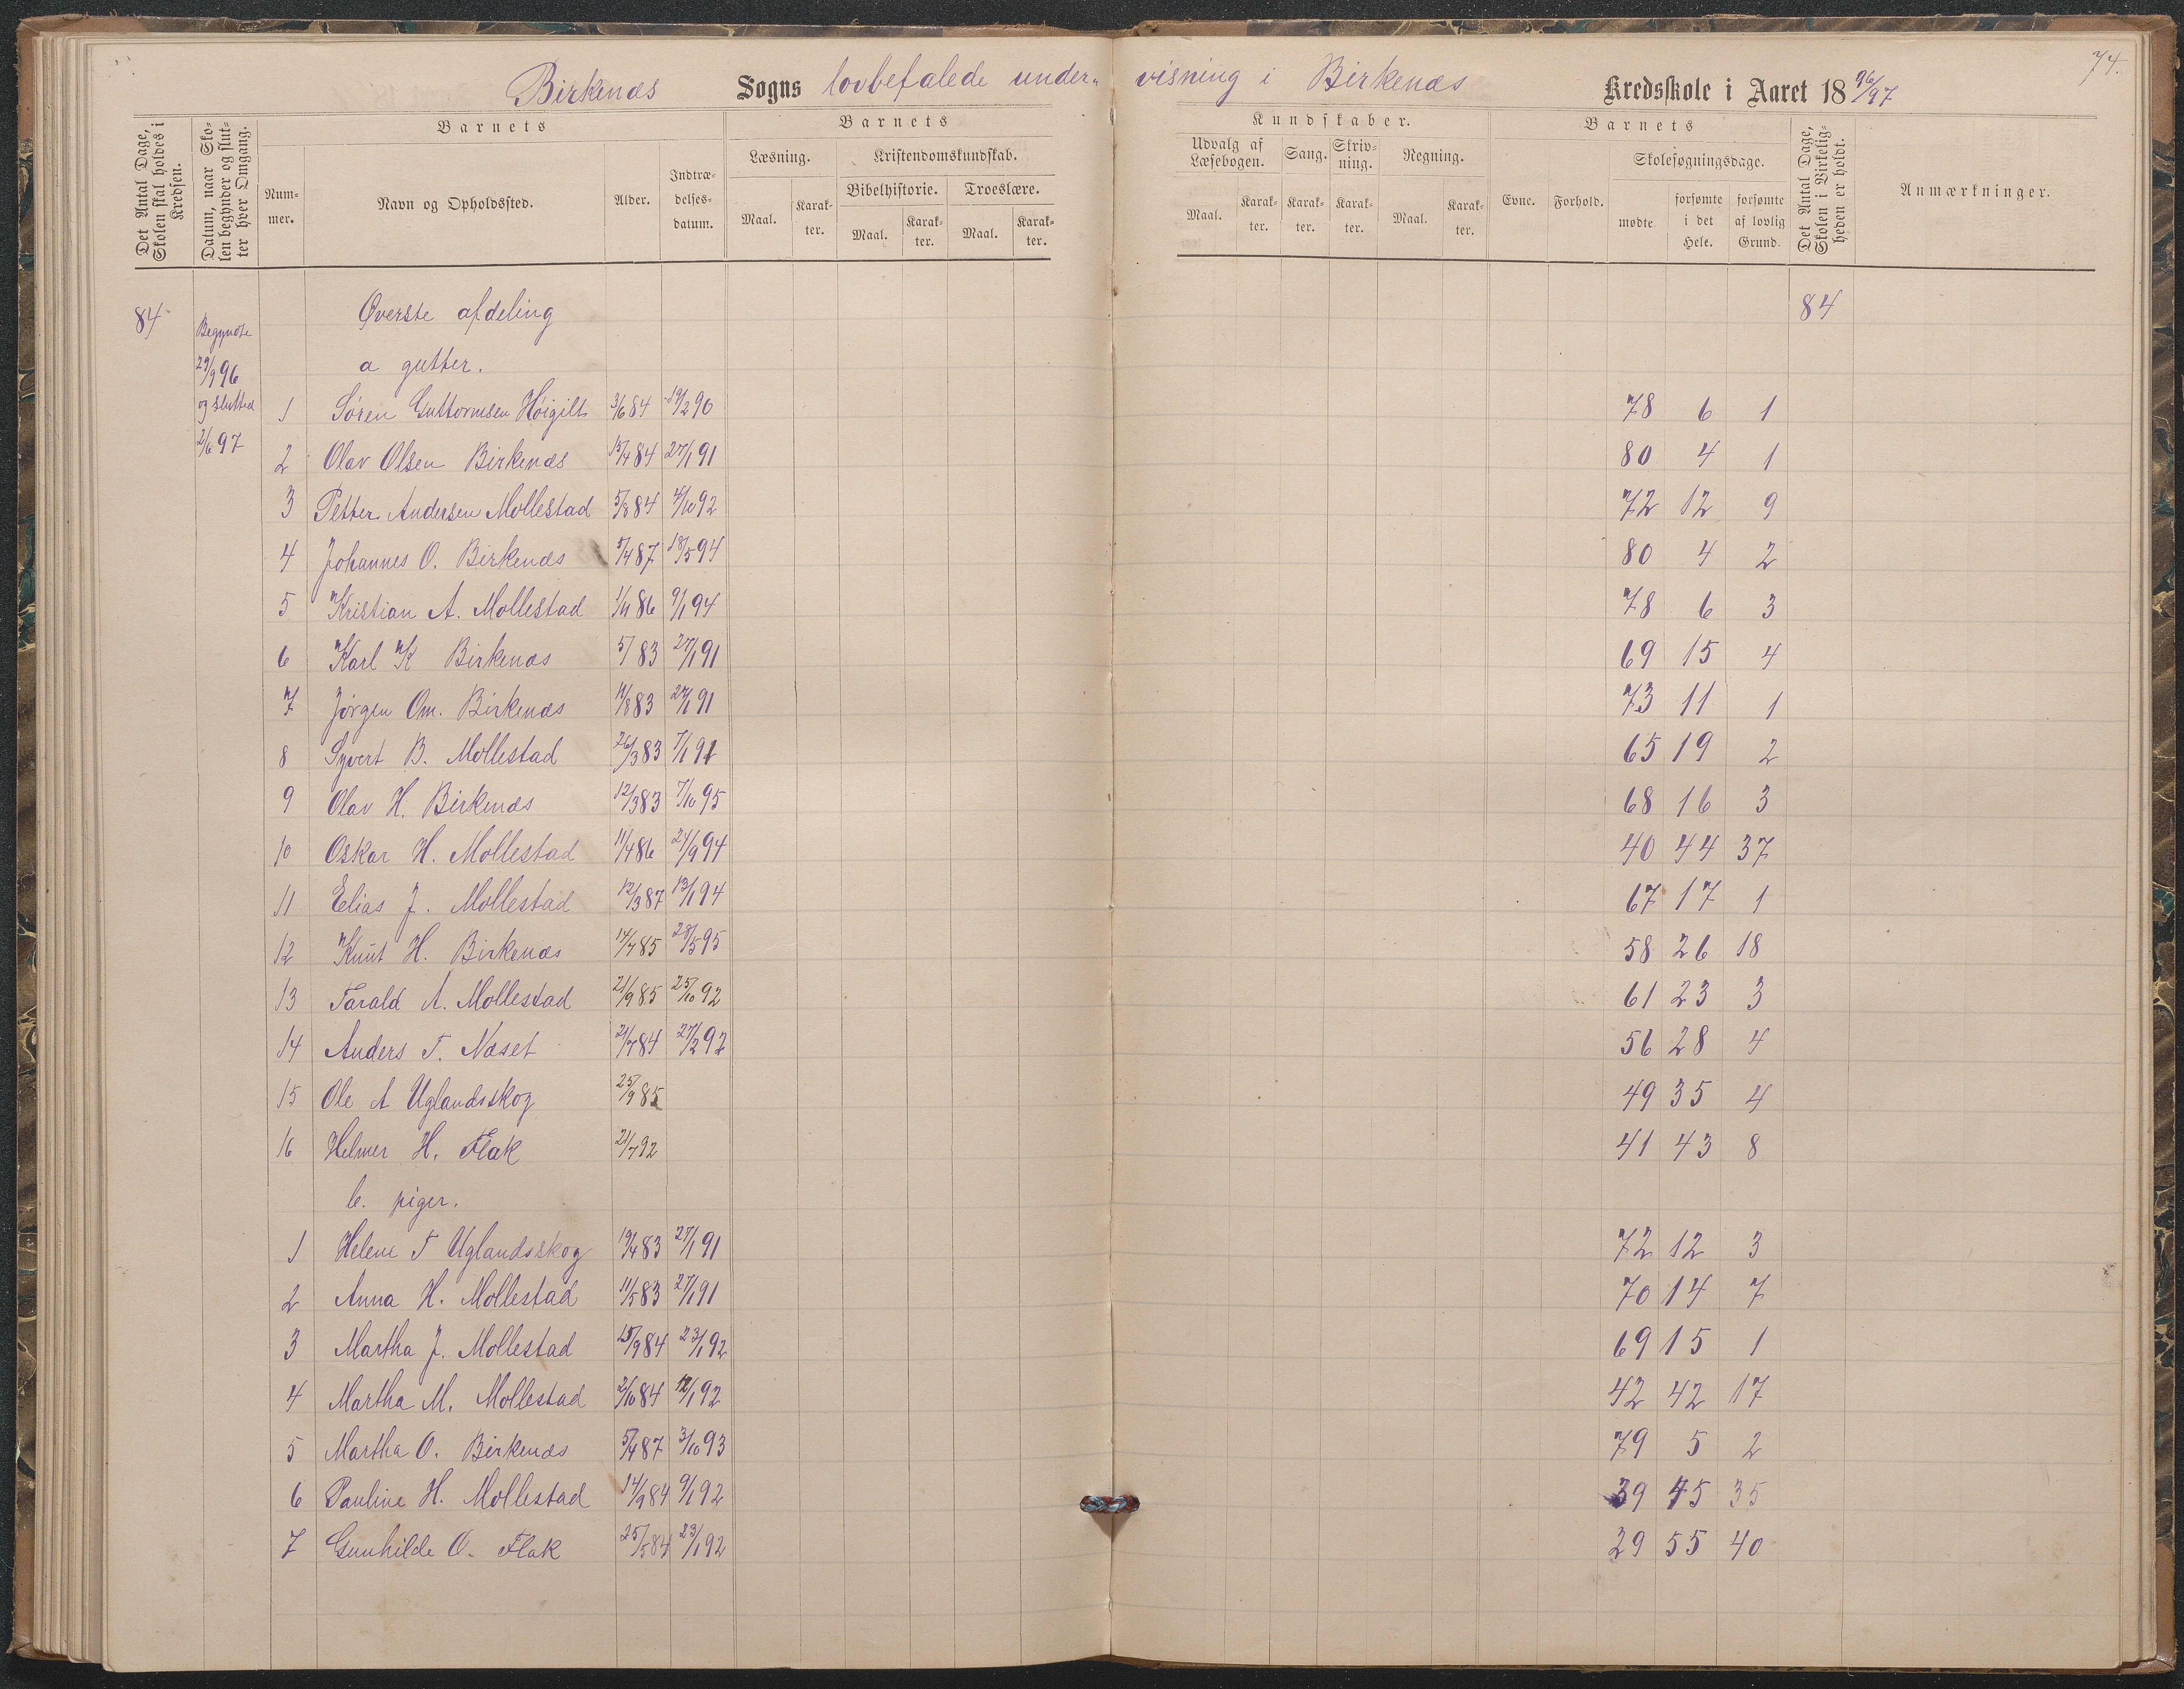 74.
Birkenæs Sogns lovbefalede under- visning i Birkenæs Kredsskole i Aaret 18 96/97
Det Antal Dage, Skolen skal holdes i Kredsen.
Datum, naar Skolen begynder og slutter hver Omgang.
Barnets
Barnets
Kundskaber.
Barnets
Det Antal Dage, Skolen i Virkeligheden er holdt.
Anmærkninger.
Nummer.
Navn og Opholdssted.
Alder.
Indtrædelsesdatum.
Læsning.
Kristendomskundskab.
Bibelhistorie.
Troeslære.
Maal.
Karakter.
Maal.
Karakter.
Maal.
Karakter.
Udvalg af Læsebogen.
Sang.
Skrivning.
Regning.
Maal.
Karakter.
Karakter.
Karakter.
Maal.
Karakter.
Evne.
Forhold.
Skolesøgningsdage.
mødte
forsømte i det Hele.
forsømte af lovlig Grund.
84 Øverste afdeling 84
Begyndte
29/9 96 a gutter.
og slutted 1 Søren Guttormsen Høigilt 3/6 84 19/2 90 78 6 1
2/6 97 2 Olav Olsen Birkenæs 15/4 84 27/1 91 80 4 1
3 Petter Andersen Mollestad 5/8 84 4/10 92 72 12 9
4 Johannes O. Birkenæs 5/4 87 18/5 94 80 4 2
5 Kristian A. Mollestad 1/11 86 9/1 94 78 6 3
6 Karl K Birkenæs 5/ 83 27/1 91 69 15 4
7 Jørgen Om. Birkenæs 11/8 83 27/1 91 73 11 1
8 Syvert B. Mollestad 26/3 83 7/1 91 65 19 2
9 Olav H. Birkenæs 12/3 83 7/10 95 68 16 3
10 Oskar H. Mollestad 11/4 86 24/9 94 40 44 37
11 Elias J. Mollestad 12/3 87 13/1 94 67 17 1
12 Knut H. Birkenæs 14/7 85 28/5 95 58 26 18
13 Tarald A. Mollestad 21/9 85 25/10 92 61 23 3
14 Anders T. Næset 21/7 84 27/2 92 56 28 4
15 Ole A Uglandsskog 25/9 85 49 35 4
16 Helmer H. Flak 21/7 92 41 43 8
b. piger.
1 Helene T Uglandsskog 19/4 83 27/1 91 72 12 3
2 Anna H. Mollestad 11/5 83 27/1 91 70 14 7
3 Martha J. Mollestad 15/9 84 23/1 92 69 15 1
4 Martha M. Mollestad 2/10 84 12/1 92 42 42 17
5 Martha O. Birkenæs 5/4 87 3/10 93 79 5 2
6 Pauline H. Mollestad 14/9 84 9/1 92 39 45 35
7 Gunhilde O. Flak 25/5 84 23/1 92 29 55 40